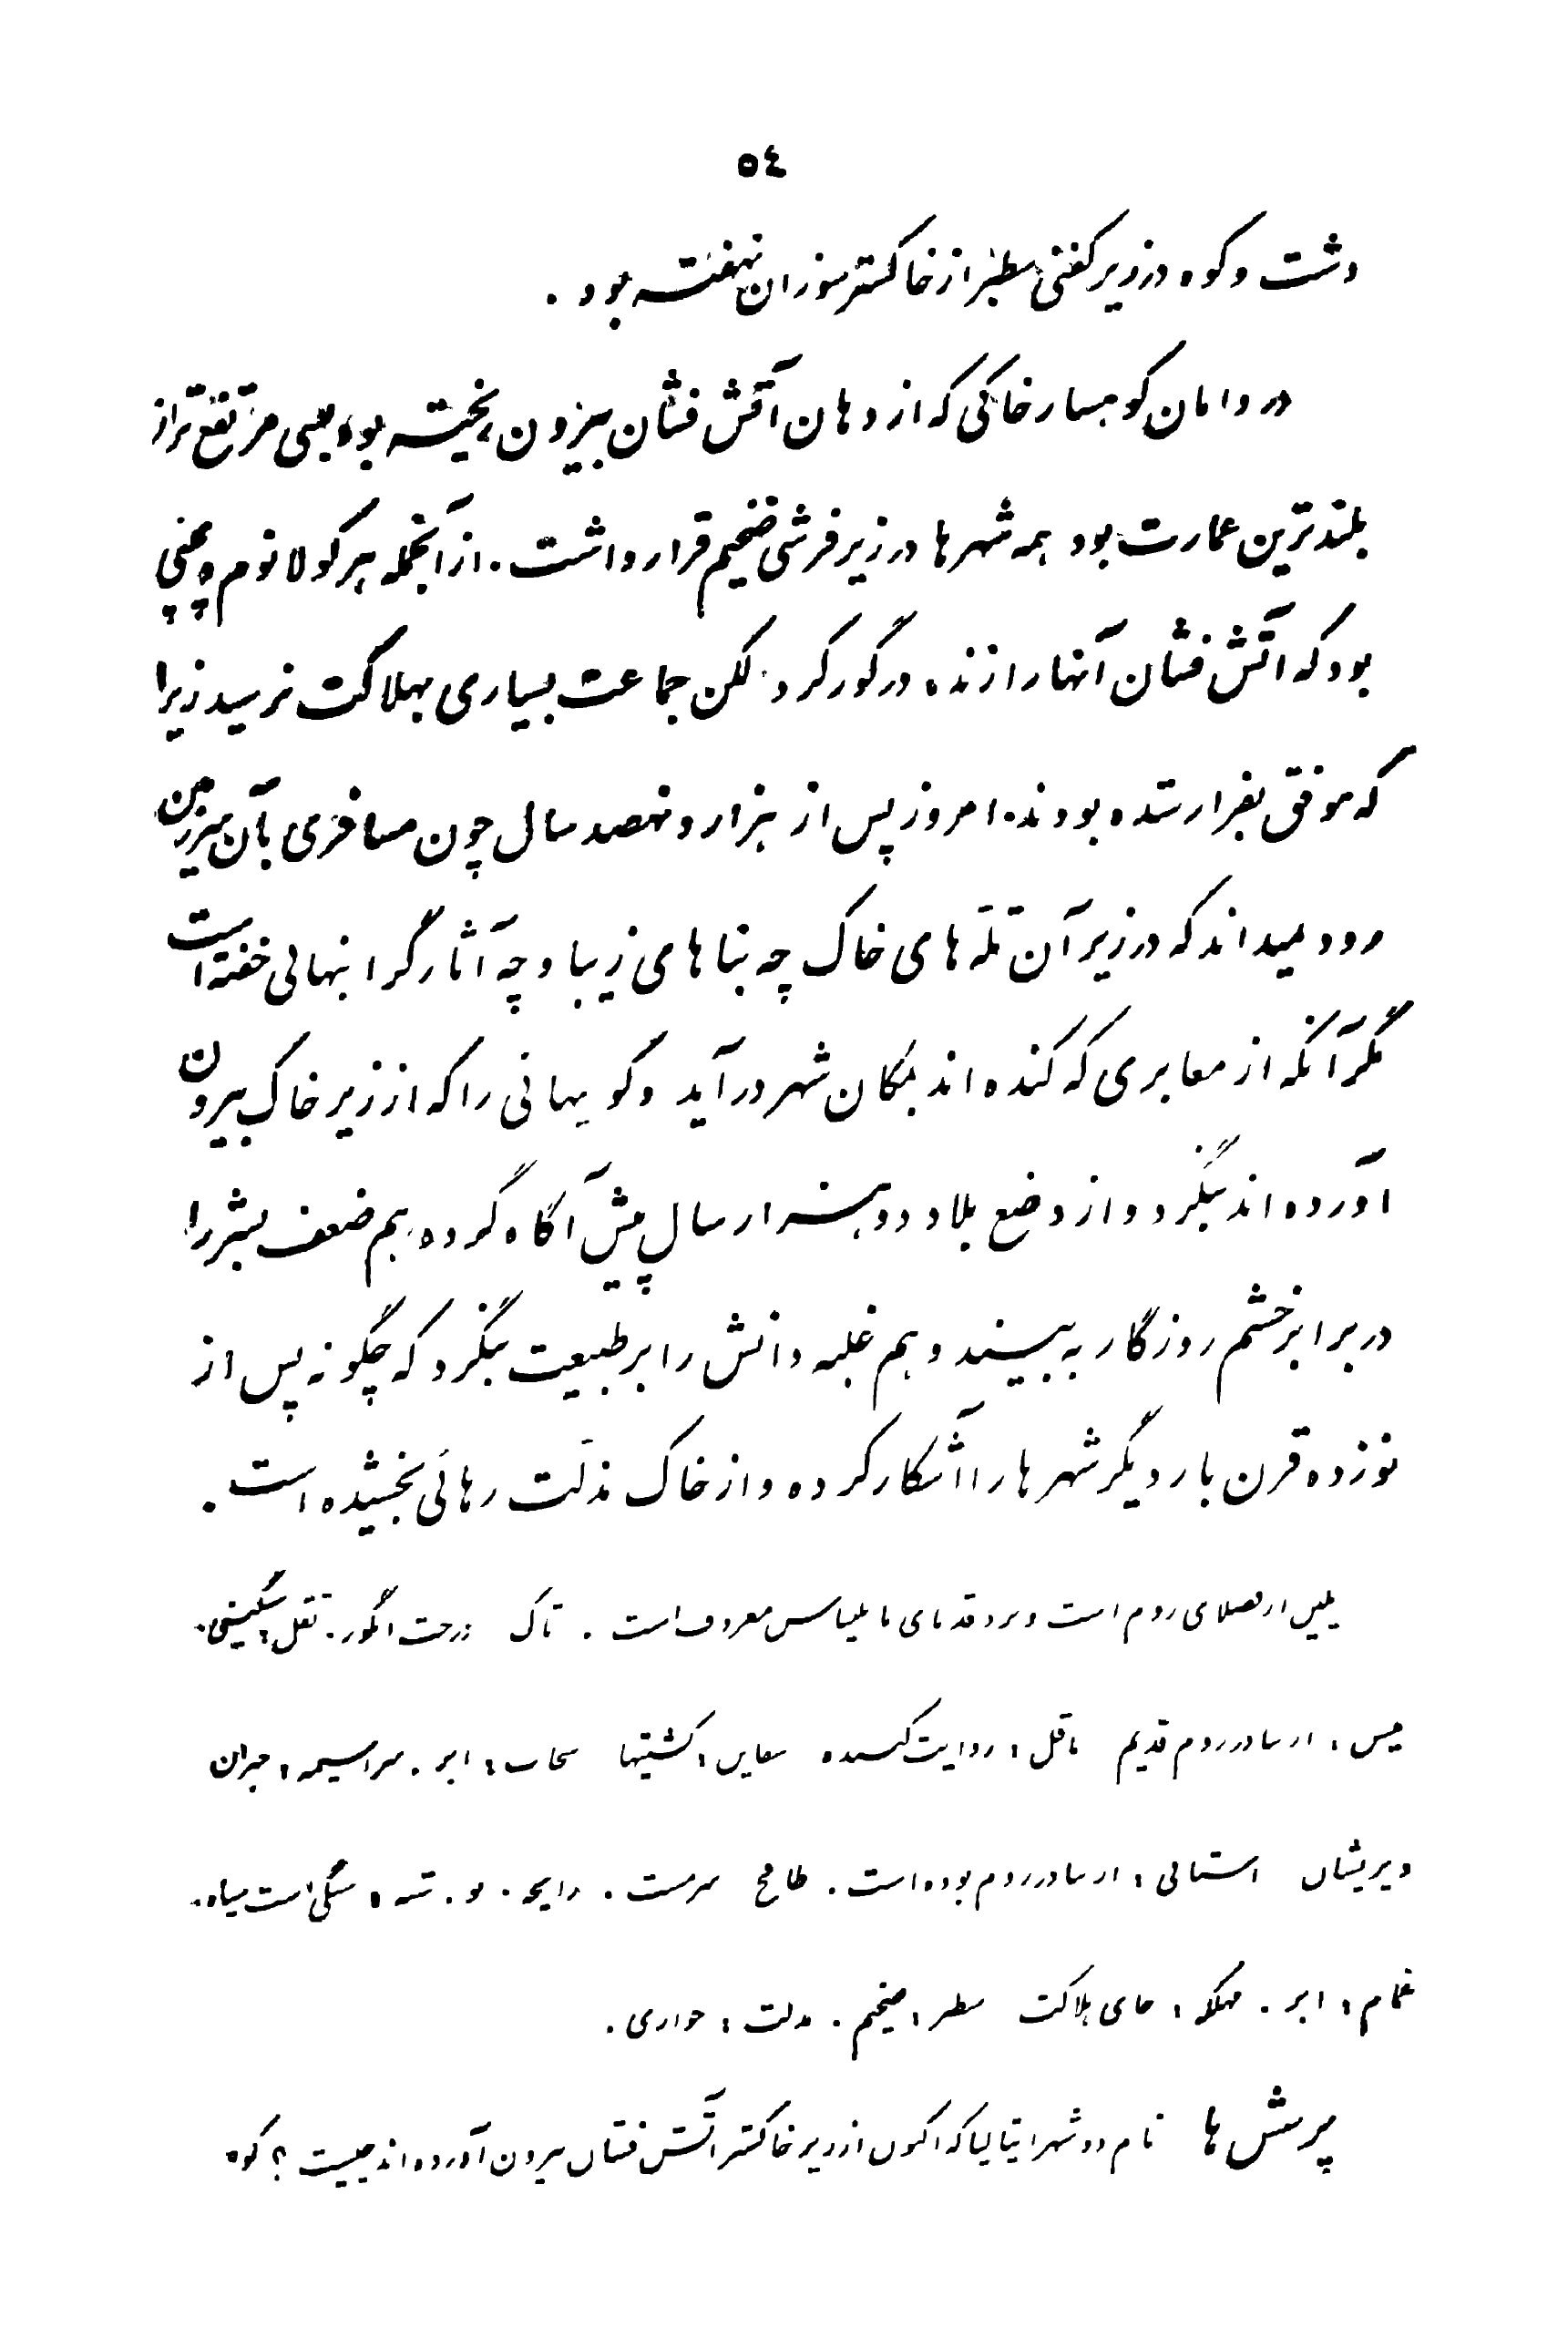 ٥٤
دشت و کوه در زیر کفنی سطبر از خاکستر سوزان نهفته بود .
در دامان کوهسار خاکی که از دهان آتش فشان بیرون ریخته بود بسی مرتفع تر از
بلندترین عمارت بود همه شهرها در زیر فرشی ضخیم قرار داشت . از آنجمله هرکولانوم و پمپئی
بود که آتش فشان آنها را زنده در گور کرد . لکن جماعت بسیاری بهلاکت نرسید زیرا
که موفق بفرار شده بودند . امروز پس از هزار و نهصد سال چون مسافری بآن سرزمین
رود نمیداند که در زیر آن تلّه های خاک چه بناهای زیبا و چه آثار گرانبهائی خفته است
مگر آنکه از معابری که کنده اند بمکان شهر درآید و کویهائی را که از زیر خاک بیرون
آورده اند بنگرد و از وضع بلاد دو هزار سال پیش آگاه گردد هم ضعف بشر را
در برابر خشم روزگار به بیند و هم غلبه دانش را بر طبیعت بنگرد که چگونه پس از
نوزده قرن بار دیگر شهرها را آشکار کرده و از خاک مذلّت رهائی بخشیده است .
پلین از فضلای روم است و نزد قدمای ما بلیناس معروف است . تاک درخت انگور . ثقل : سنگینی .
میس : از بنادر روم قدیم ناقل : روایت کننده سفاین : کشتیها سحاب : ابر . سراسیمه : حیران
و پریشان استابی : از بنادر روم بوده است . طافح سرمست . رایحه . بو . شبه : سنگی است سیاه .
غمام : ابر . مهلکه : جای هلاکت سطبر : ضخیم . مذلت : خواری .
پرسش ها نام دو شهر ایتالیا که اکنون از زیر خاکستر آتش فشان بیرون آورده اند چیست ؟ کوه